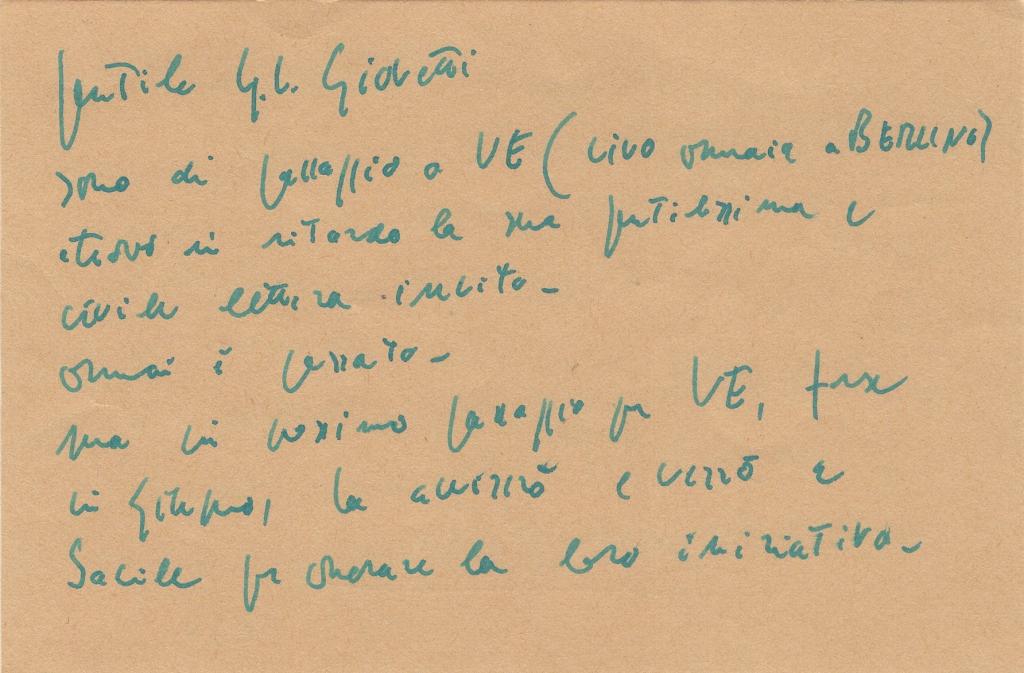 gentile G.L. Giovetti
sono di passaggio a VE (vivo ormai a BERLINO)
e trovo in ritardo la sua gentilissima e
civile lettera invito -
ormai è passato -
ma in prossimo passaggio per VE, forse
in Giugno, la avviserò e verrò a
Sacile per onorare la loro iniziativa -